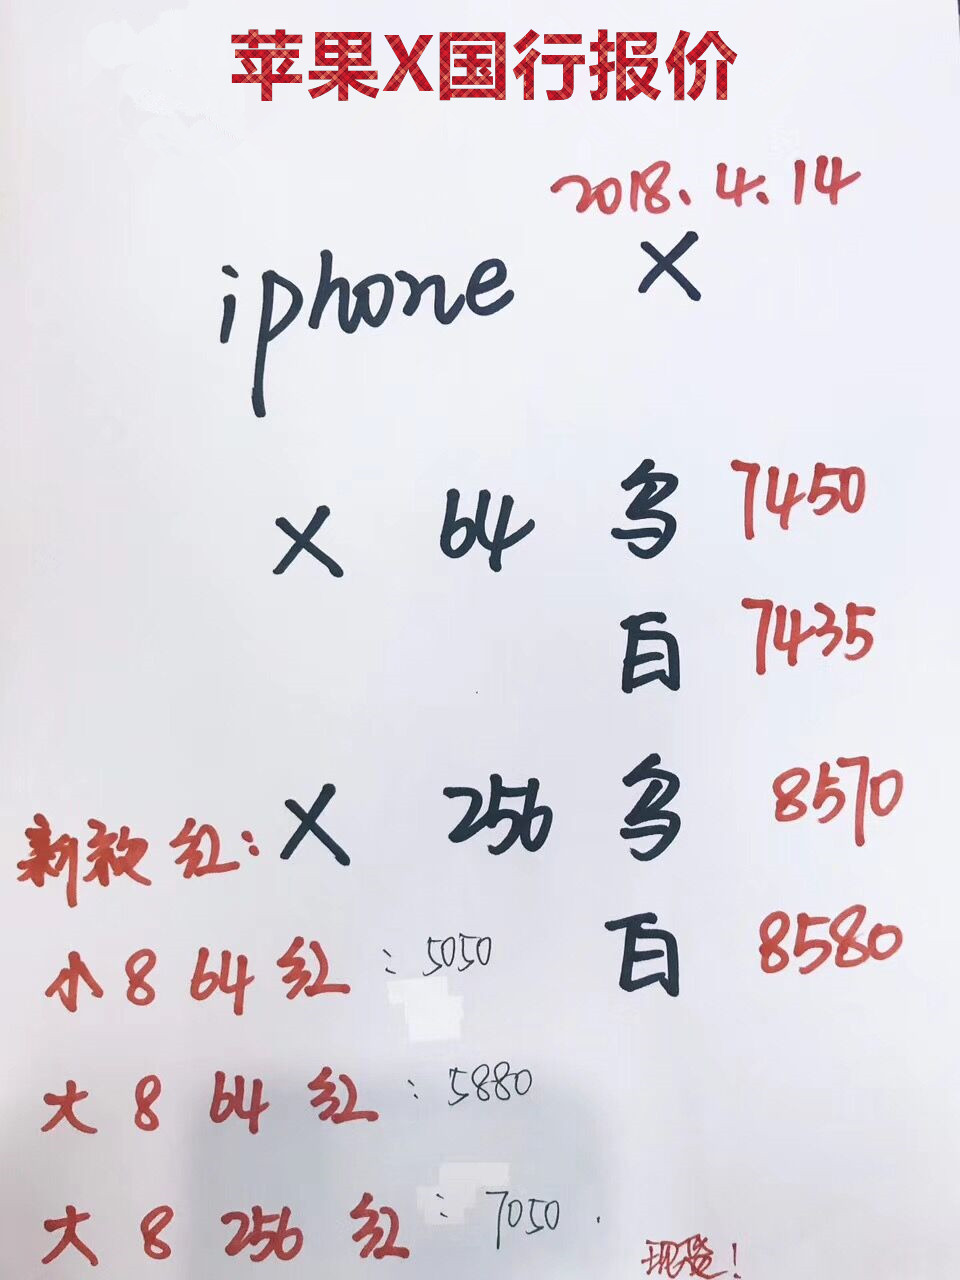 苹果X国行报价
2018.4.14
iphone X
X 64 乌 7450
白 7435
X 256 乌 8570
新款红:
白 8580
小8 64 红:5050
大8 64 红:5880
大8 256 红:7050.
现发!